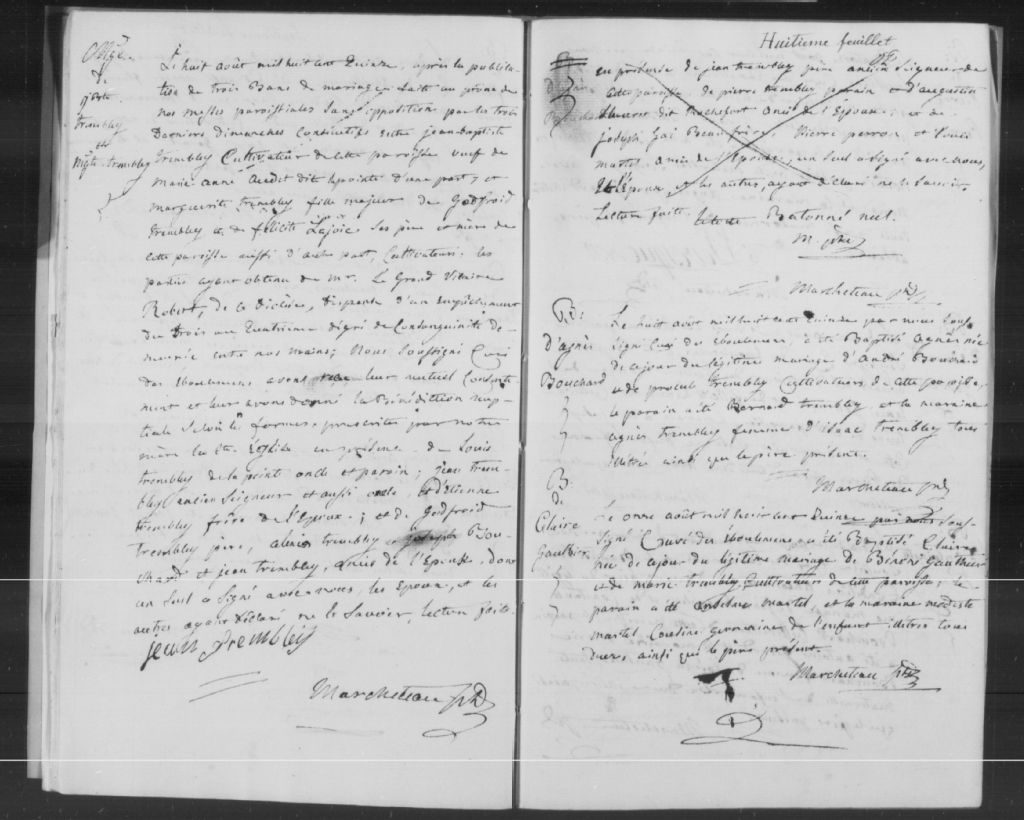 Mge.
de
jbte.
trembley
et
Mgte. trembley
Le huit août mil huit cent Quinze, après la publica-
tion de trois Bans de mariage faite au prône de
nos messes paroissiales sans opposition par les trois
Derniers dimanches Consécutifs entre jean-baptiste
trembley Cultivateur de cette paroisse veuf de
marie anne Audet dit lapointe d'une part, et
marguerite trembley fille majeur de Godfroid
trembley et de félicité Lajoie ses père et mère de
cette paroisse aussi d'autre part, Cultivateurs; les
parties ayant obtenu de Mr. Le Grand Vicaire
Robert, de ce Diocèse, dispense d'un Empêchement
du trois au Quatrieme dégré de Consanguinité de-
meurée entre nos mains; Nous Soussigné Curé
des éboulemens, avons leur mutuel Consente-
ment et leur avons donné la Bénédiction nup-
tiale selon les formes prescrites par notre
mère la Ste. Eglise en présence de Louis
trembley de la point oncle et parain; jean trem-
bley ancien Seigneur et aussi oncle, et d'étienne
trembley frère de l'Epoux; et de Godfroid
trembley père, alexis trembley joseph Bou-
chard et jean trembley, amis de l'Epouse, dont
un seul a Signé avec nous, les Epoux, et les
autres ayant déclaré ne le savoir, lecture faite.
jean Trembley
Marcheteau ptre
Huitieme feuillet
en présence de jean trembley père ancien Seigneur de
cette paroisse de pierre trembley parain et d'augustin
dit Rochefort amis de l'Epouse; et de
joseph Gai Beaufrère, Pierre perron et Louis
martel amis de l'Epouse, un seul a signé avec nous,
l'Epoux, et les autres, ayant déclaré ne le savoir,
Lecture faite. Batonné nul.
M. ptre
Marcheteau ptre
B.
d'agnès
Bouchard
Le huit août mil huit cent Quinze par nous Sous-
signé Curé des éboulemens, a été Baptisé agnès née
de ce jour du légitime mariage d'André Bouchard
et de trembley Cultivateurs de cette paroisse,
le parain a été Bernard trembley, et la maraine
agnès trembley femme d'isaac trembley tous
illétrés ainsi que le père présent.
Marcheteau ptre
B.
de
Claire
Gauthier
Le onze août mil huit cent Quinze par nous Sous-
signé Curé des éboulemens, a été Baptisé Claire
née de ce jour du légitime mariage de Gauthier
et de marie trembley Cultivateurs de cette paroisse; le
parain a été anselme martel, et la maraine modeste
martel Cousine germaine de l'enfant illétrés tous
deux, ainsi que le père présent.
Marcheteau ptre